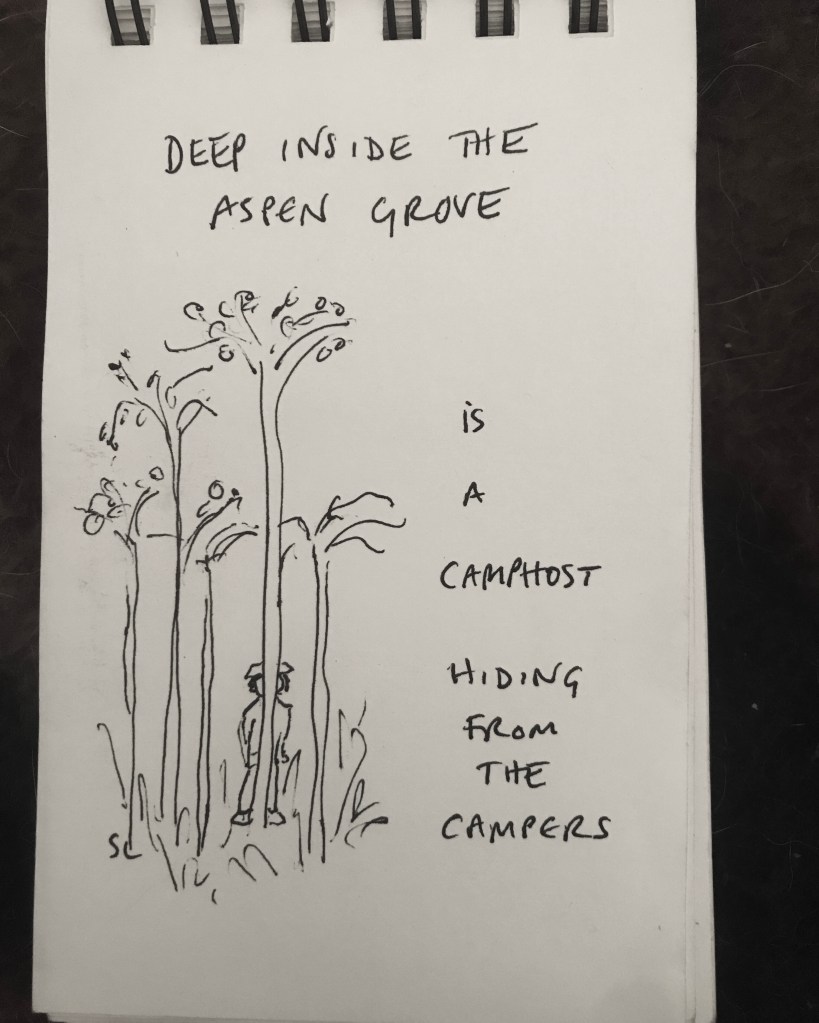 DEEP INSIDE THE
ASPEN GROVE
iS
A
CAMPHOST
HIDING
FROM
THE
CAMPERS
SC